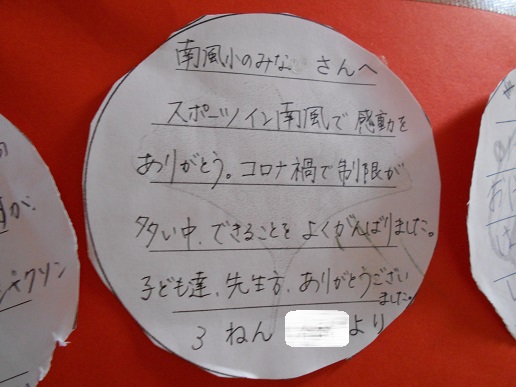 南風小のみな さんへ
スポーツイン南風で感動を
ありがとう。コロナ禍で制限が
多い中、できることをよくがんばりました。
子ども達、先生方、ありがとうござい
ました。
3 ねん より